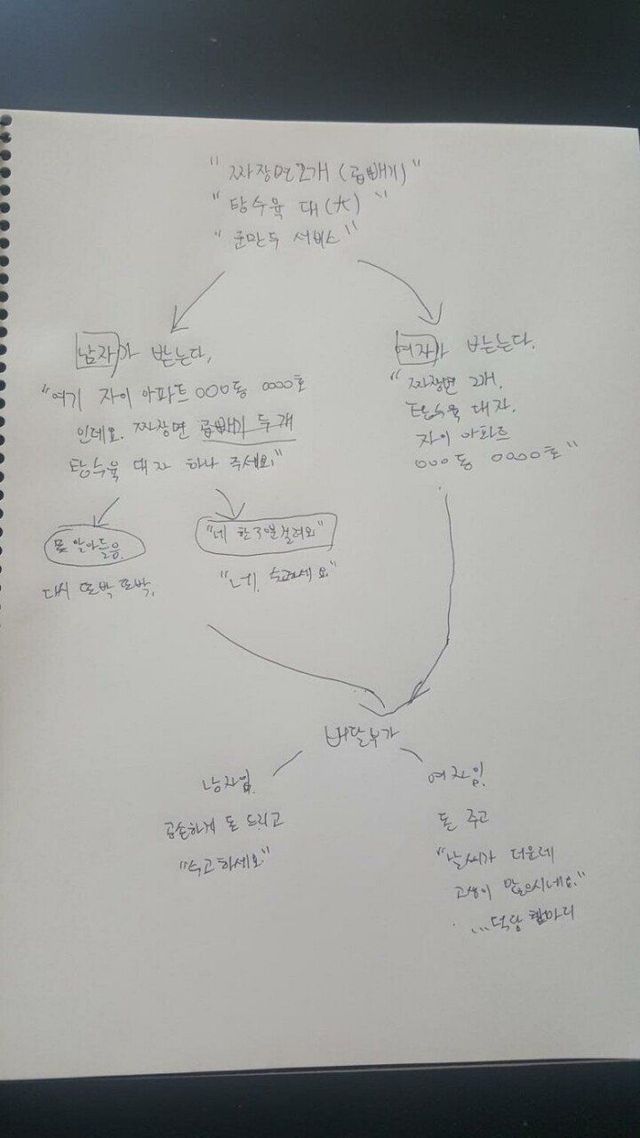 "짜장면2개 (곱빼기)"
"탕수육 대(大)"
"군만두 서비스"
남자가 받는다,
"여기 자이 아파트 000동 0000호
인데요. 짜장면 곱빼기 두개
탕수육 대자 하나 주세요."
못 알아들음.
다시 또박또박.
"네 한 30분걸려요"
"네. 수고하세요."
여자가 받는다.
"짜장면 2개.
탕수육 대자.
자이 아파트
000동 0000호"
배달부가
남자임.
공손하게 돈 드리고
"수고하세요"
여자임.
돈 주고
"날씨가 더운데
고생이 많으시네요."
...덕담 한마디